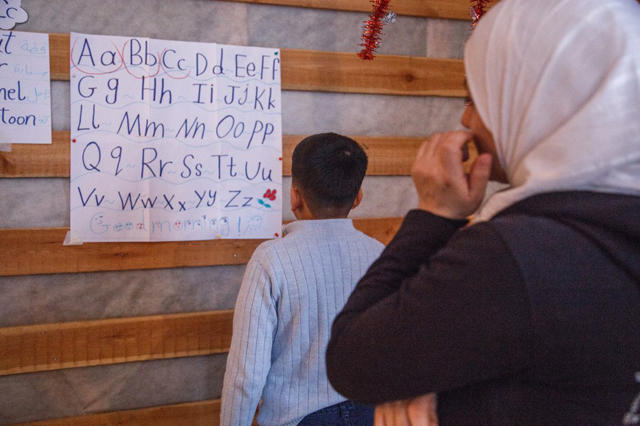 Cc
Aa Bb Cc Dd Ee Ff
Gg Hh Ii Jj Kk
Ll Mm Nn Oo Pp
Qq Rr Ss Tt Uu
Vv Ww Xx Yy Zz
Good morning!